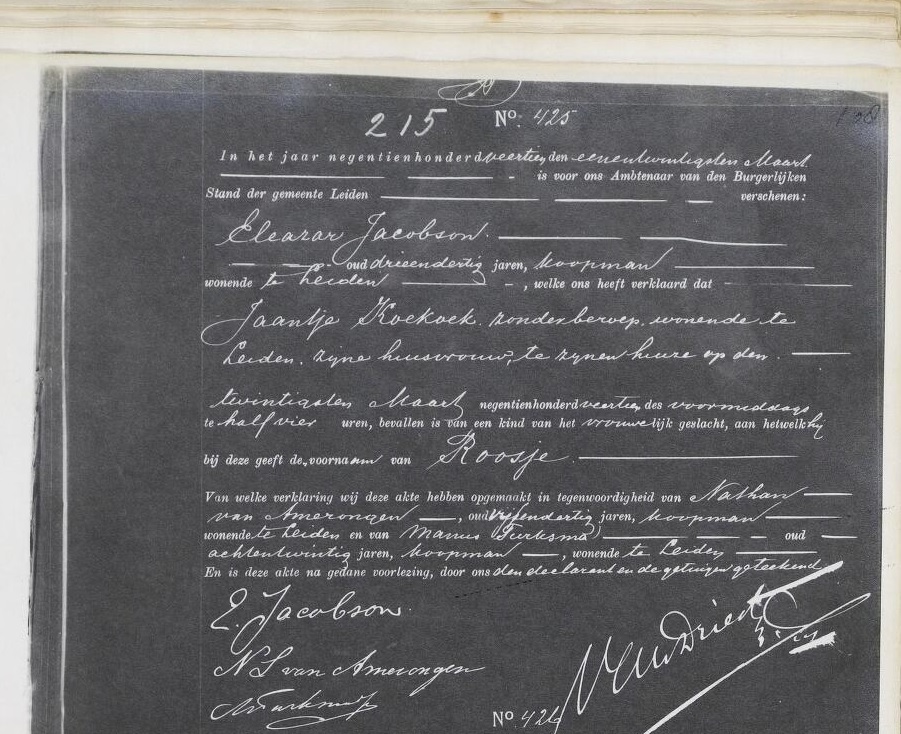 215 No. 425
In het jaar negentienhonderd veertien den eenentwintigsten Maart
is voor ons Ambtenaar van den Burgerlijken
Stand der gemeente Leiden verschenen:
Eleazar Jacobson.
oud drieendertig jaren, koopman
wonende te Leiden, welke ons heeft verklaard dat
Jaantje Koekoek, zonder beroep, wonende te
Leiden, zijne huisvrouw, te zijnen huize op den
twintigsten Maart negentienhonderd veertien des voormiddags
te half vier uren, bevallen is van een kind van het vrouwelijk geslacht, aan hetwelk hij
bij deze geeft de voornaam van Roosje.
Van welke verklaring wij deze akte hebben opgemaakt in tegenwoordigheid van Nathan
van Amerongen, oud vijfendertig jaren, koopman
wonende te Leiden en van Manus Turksma oud
achtentwintig jaren, koopman, wonende te Leiden
En is deze akte na gedane voorlezing, door ons den declarant en de getuigen geteekend
E. Jacobson.
N S van Amerongen
No. 426